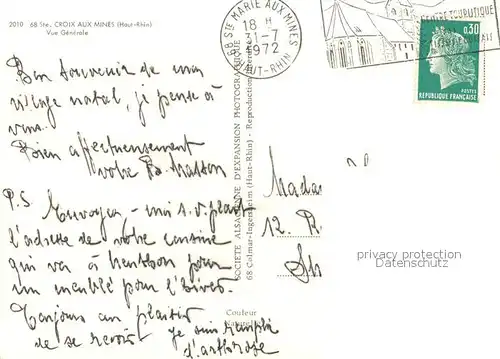 2010 68 Ste. CROIX AUX MINES (Haut-Rhin)
Vue Générale
68 STE MARIE AUX MINES
18 H
31-7
1972
HAUT-RHIN
CENTRE TOURISTIQUE
0,30
POSTES
REPUBLIQUE FRANÇAISE
Bon souvenir de mon
village natal, je pense à
vous.
Bien affectueusement
votre B. Masson
P.S Envoyez-moi s.v. plait
l'adresse de votre cousine
qui va à pour
un meuble pour l'
Toujours au plaisir
de se revoir je suis remplie
d'arthrose
SOCIÉTÉ ALSACIENNE D'EXPANSION PHOTOGRAPHIQUE
68 Colmar-Ingersheim (Haut-Rhin) - Reproduction
Couleur
Madam
12. R.
privacy protection
Datenschutz